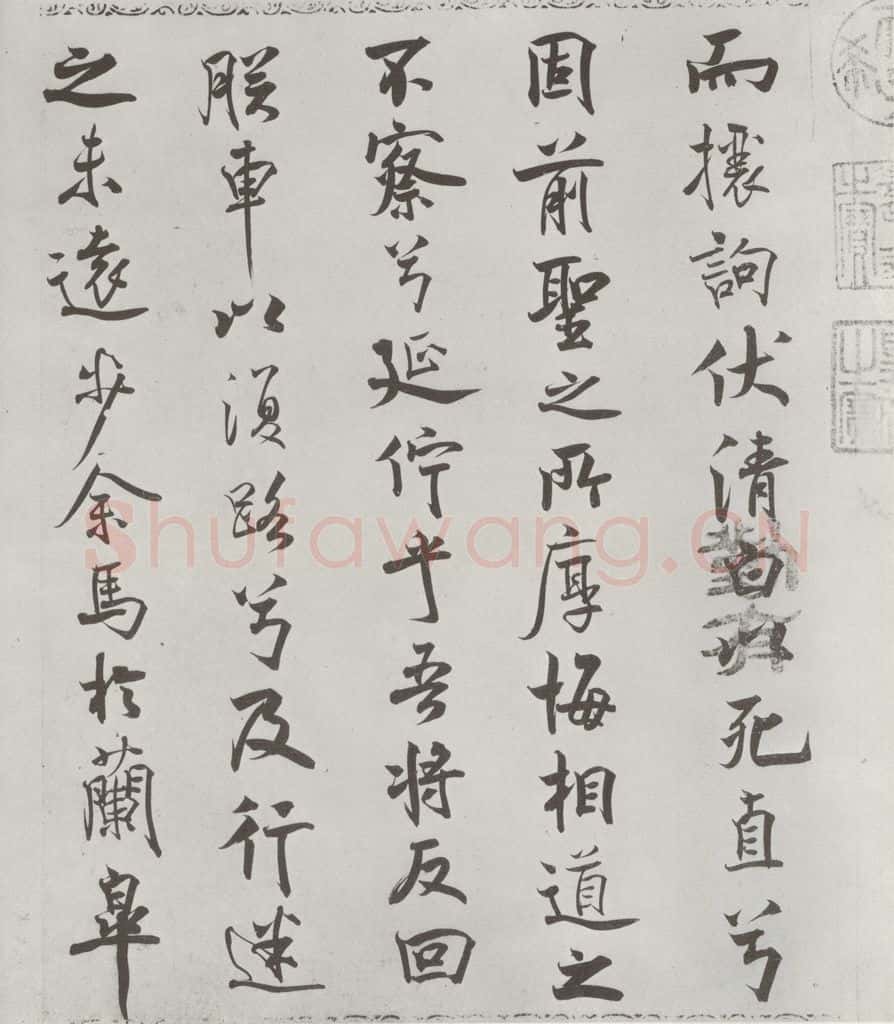 而攘訽伏清白以死直兮
固前聖之所厚悔相道之
不察兮延佇乎吾将反回
朕車以復路兮及行迷
之未遠步余馬於蘭皋
Shufawang.CN